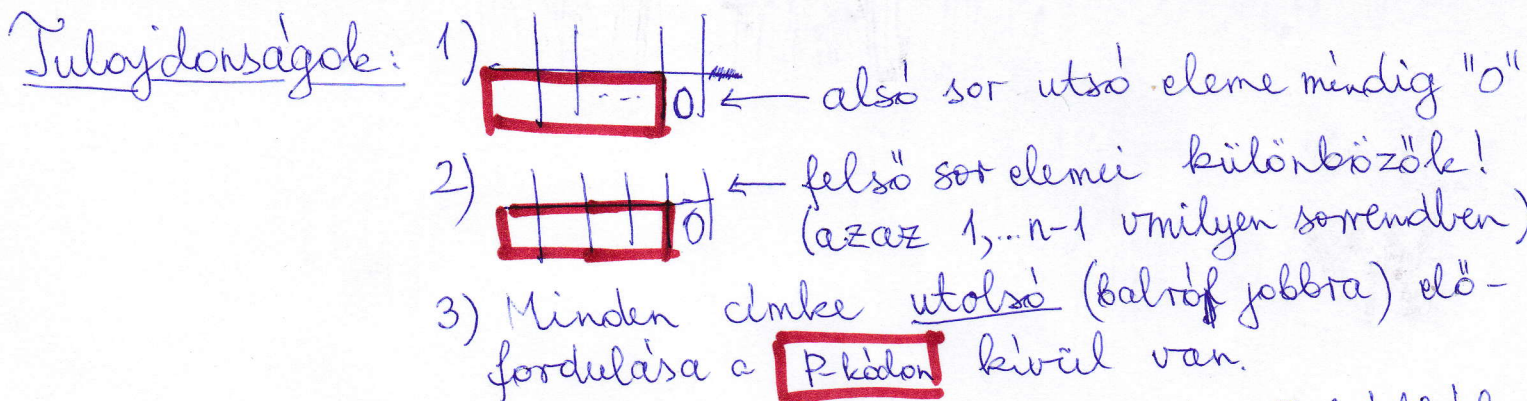 Tulajdonságok: 1) ... 0 ← alsó sor utsó eleme mindig "0"
2) 0 ← felső sor elemei különbözők!
(azaz 1,...n-1 vmilyen sorrendben)
3) Minden címke utolsó (balról jobbra) elő-
fordulása a P-kódon kívül van.